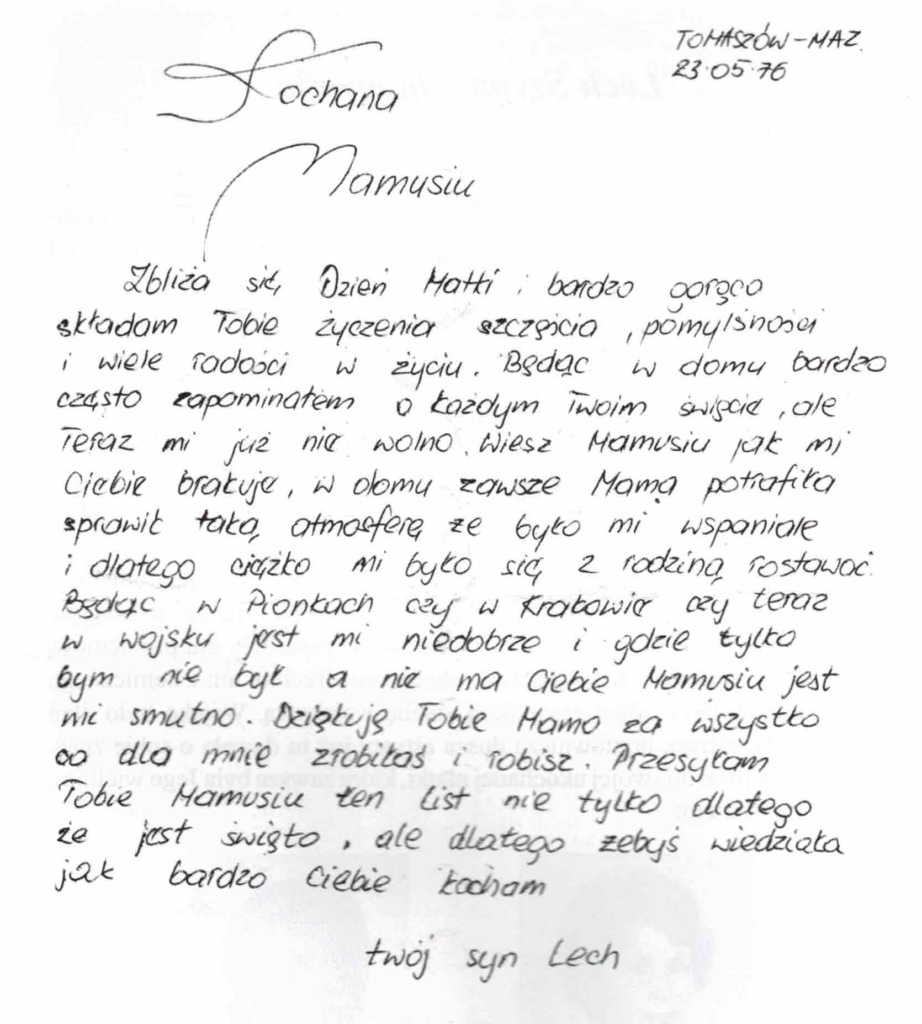 TOMASZÓW-MAZ.
23.05.76
Kochana
Mamusiu
Zbliża się, Dzień Matki i bardzo gorąco
składam Tobie życzenia szczęścia, pomyślności
i wiele radości w życiu. Będąc w domu bardzo
często zapominałem o każdym Twoim święcie, ale
teraz mi już nie wolno. Wiesz Mamusiu jak mi
Ciebie brakuje, w domu zawsze Mama potrafiła
sprawić taką atmosferę że było mi wspaniale
i dlatego ciężko mi było się z rodziną rostawać.
Będąc w Pionkach czy w Krakowie czy teraz
w wojsku jest mi niedobrze i gdzie tylko
bym nie był a nie ma Ciebie Mamusiu jest
mi smutno. Dziękuję Tobie Mamo za wszystko
co dla mnie zrobiłaś i robisz. Przesyłam
Tobie Mamusiu ten list nie tylko dlatego
że jest święto, ale dlatego żebyś wiedziała
jak bardzo Ciebie kocham
twój syn Lech